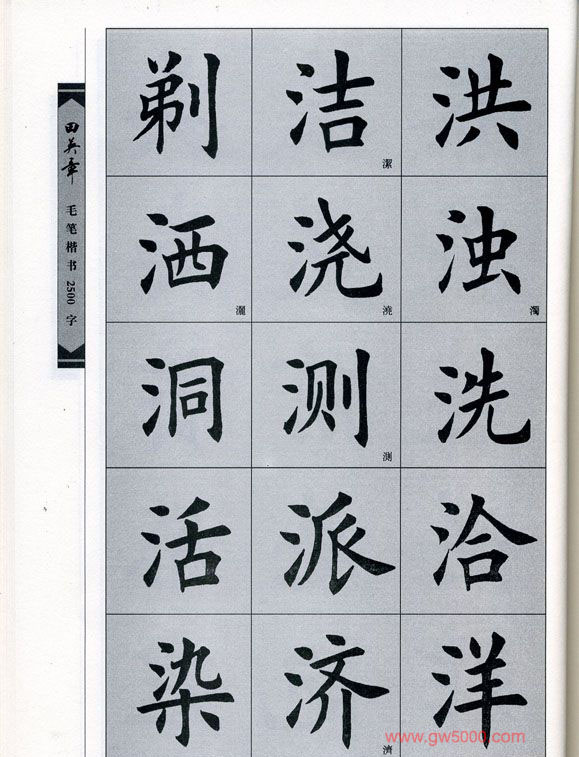 田英章
毛笔楷书 2500 字
剃 洁 潔 洪
洒 灑 浇 澆 浊 濁
洞 测 測 洗
活 派 洽
染 济 濟 洋
www.gw5000.com